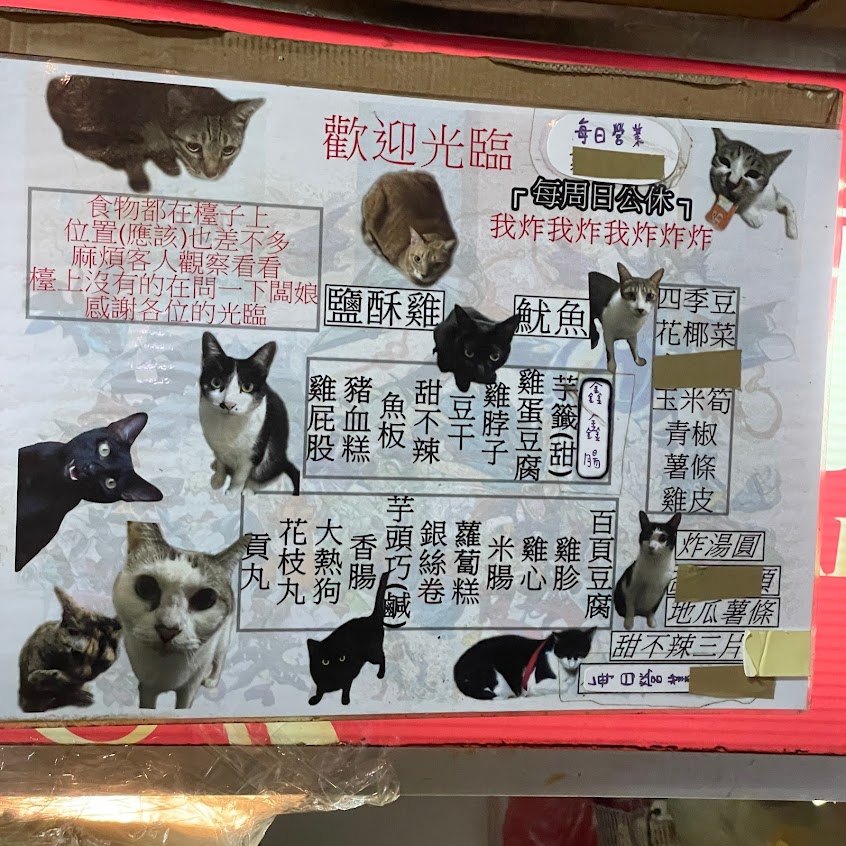 歡迎光臨
每日營業
「每周日公休」
我炸我炸我炸炸炸
食物都在檯子上
位置(應該)也差不多
麻煩客人觀察看看
檯上沒有的在問一下闆娘
感謝各位的光臨
鹽酥雞
魷魚
四季豆
花椰菜
玉米筍
青椒
薯條
雞皮
鑫鑫腸
芋籤(甜)
雞蛋豆腐
雞脖子
豆干
甜不辣
魚板
豬血糕
雞屁股
百頁豆腐
雞胗
雞心
米腸
蘿蔔糕
銀絲卷
芋頭巧(鹹)
香腸
大熱狗
花枝丸
貢丸
炸湯圓
地瓜薯條
甜不辣三片
每日營業